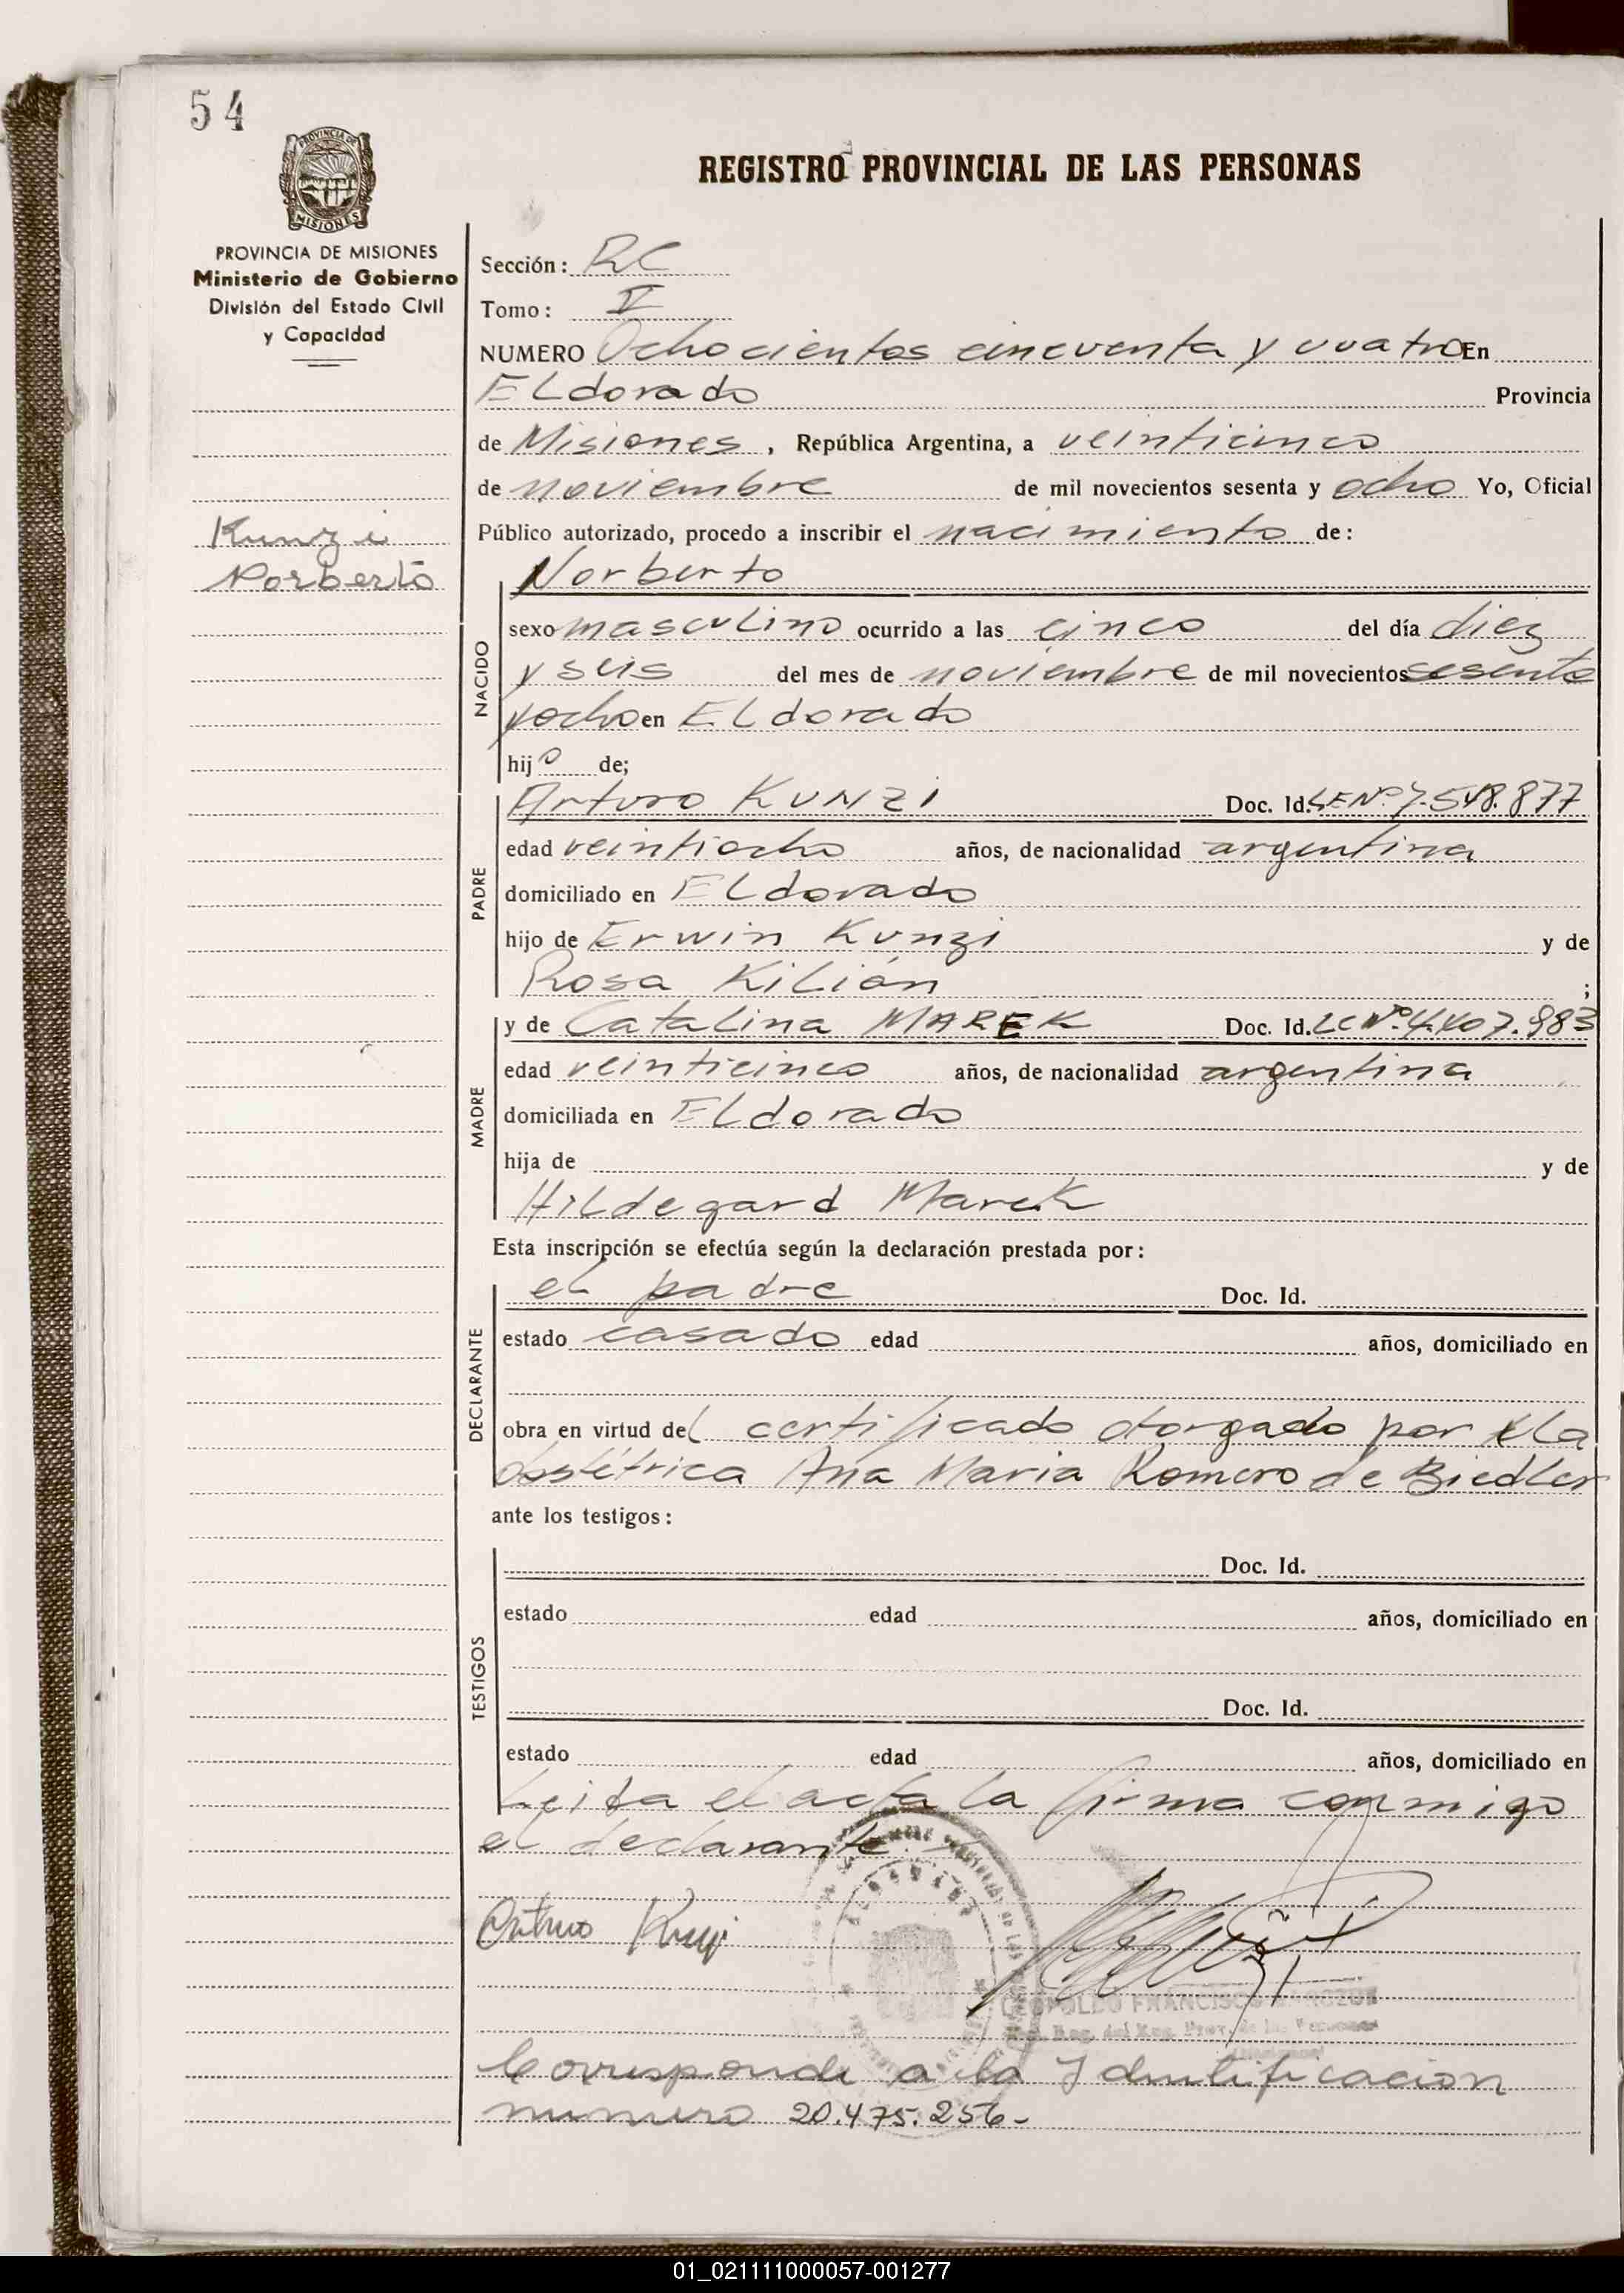 54
PROVINCIA DE
MISIONES
REGISTRO PROVINCIAL DE LAS PERSONAS
PROVINCIA DE MISIONES
Ministerio de Gobierno
División del Estado Civil
y Capacidad
Kunzi
Norberto
Sección: RC
Tomo: V
NUMERO Ochocientos cincuenta y cuatro En
ELdorado Provincia
de Misiones, República Argentina, a veinticinco
de noviembre de mil novecientos sesenta y ocho Yo, Oficial
Público autorizado, procedo a inscribir el nacimiento de:
NACIDO
Norberto
sexo masculino ocurrido a las cinco del día diez
y seis del mes de noviembre de mil novecientos sesenta
y ocho en ELdorado
hijo de;
PADRE
Arturo KUNZI Doc. Id. LE Nº 7.548.877
edad veintiocho años, de nacionalidad argentina
domiciliado en ELdorado
hijo de Erwin Kunzi y de
Rosa Kilián ;
MADRE
y de Catalina MAREK Doc. Id. LC Nº 4.407.983
edad veinticinco años, de nacionalidad argentina
domiciliada en ELdorado
hija de y de
Hildegard Marek
Esta inscripción se efectúa según la declaración prestada por:
DECLARANTE
el padre Doc. Id.
estado casado edad años, domiciliado en
obra en virtud del certificado otorgado por la
obstétrica Ana Maria Romero de Biedler
ante los testigos:
TESTIGOS
Doc. Id.
estado edad años, domiciliado en
Doc. Id.
estado edad años, domiciliado en
Leida el acta la firma conmigo
el declarante.
Arturo Kunzi
LEOPOLDO FRANCISCO
Reg. del Reg. Prov. de las Personas
Corresponde a la Identificacion
numero 20.475.256-
01_021111000057-001277